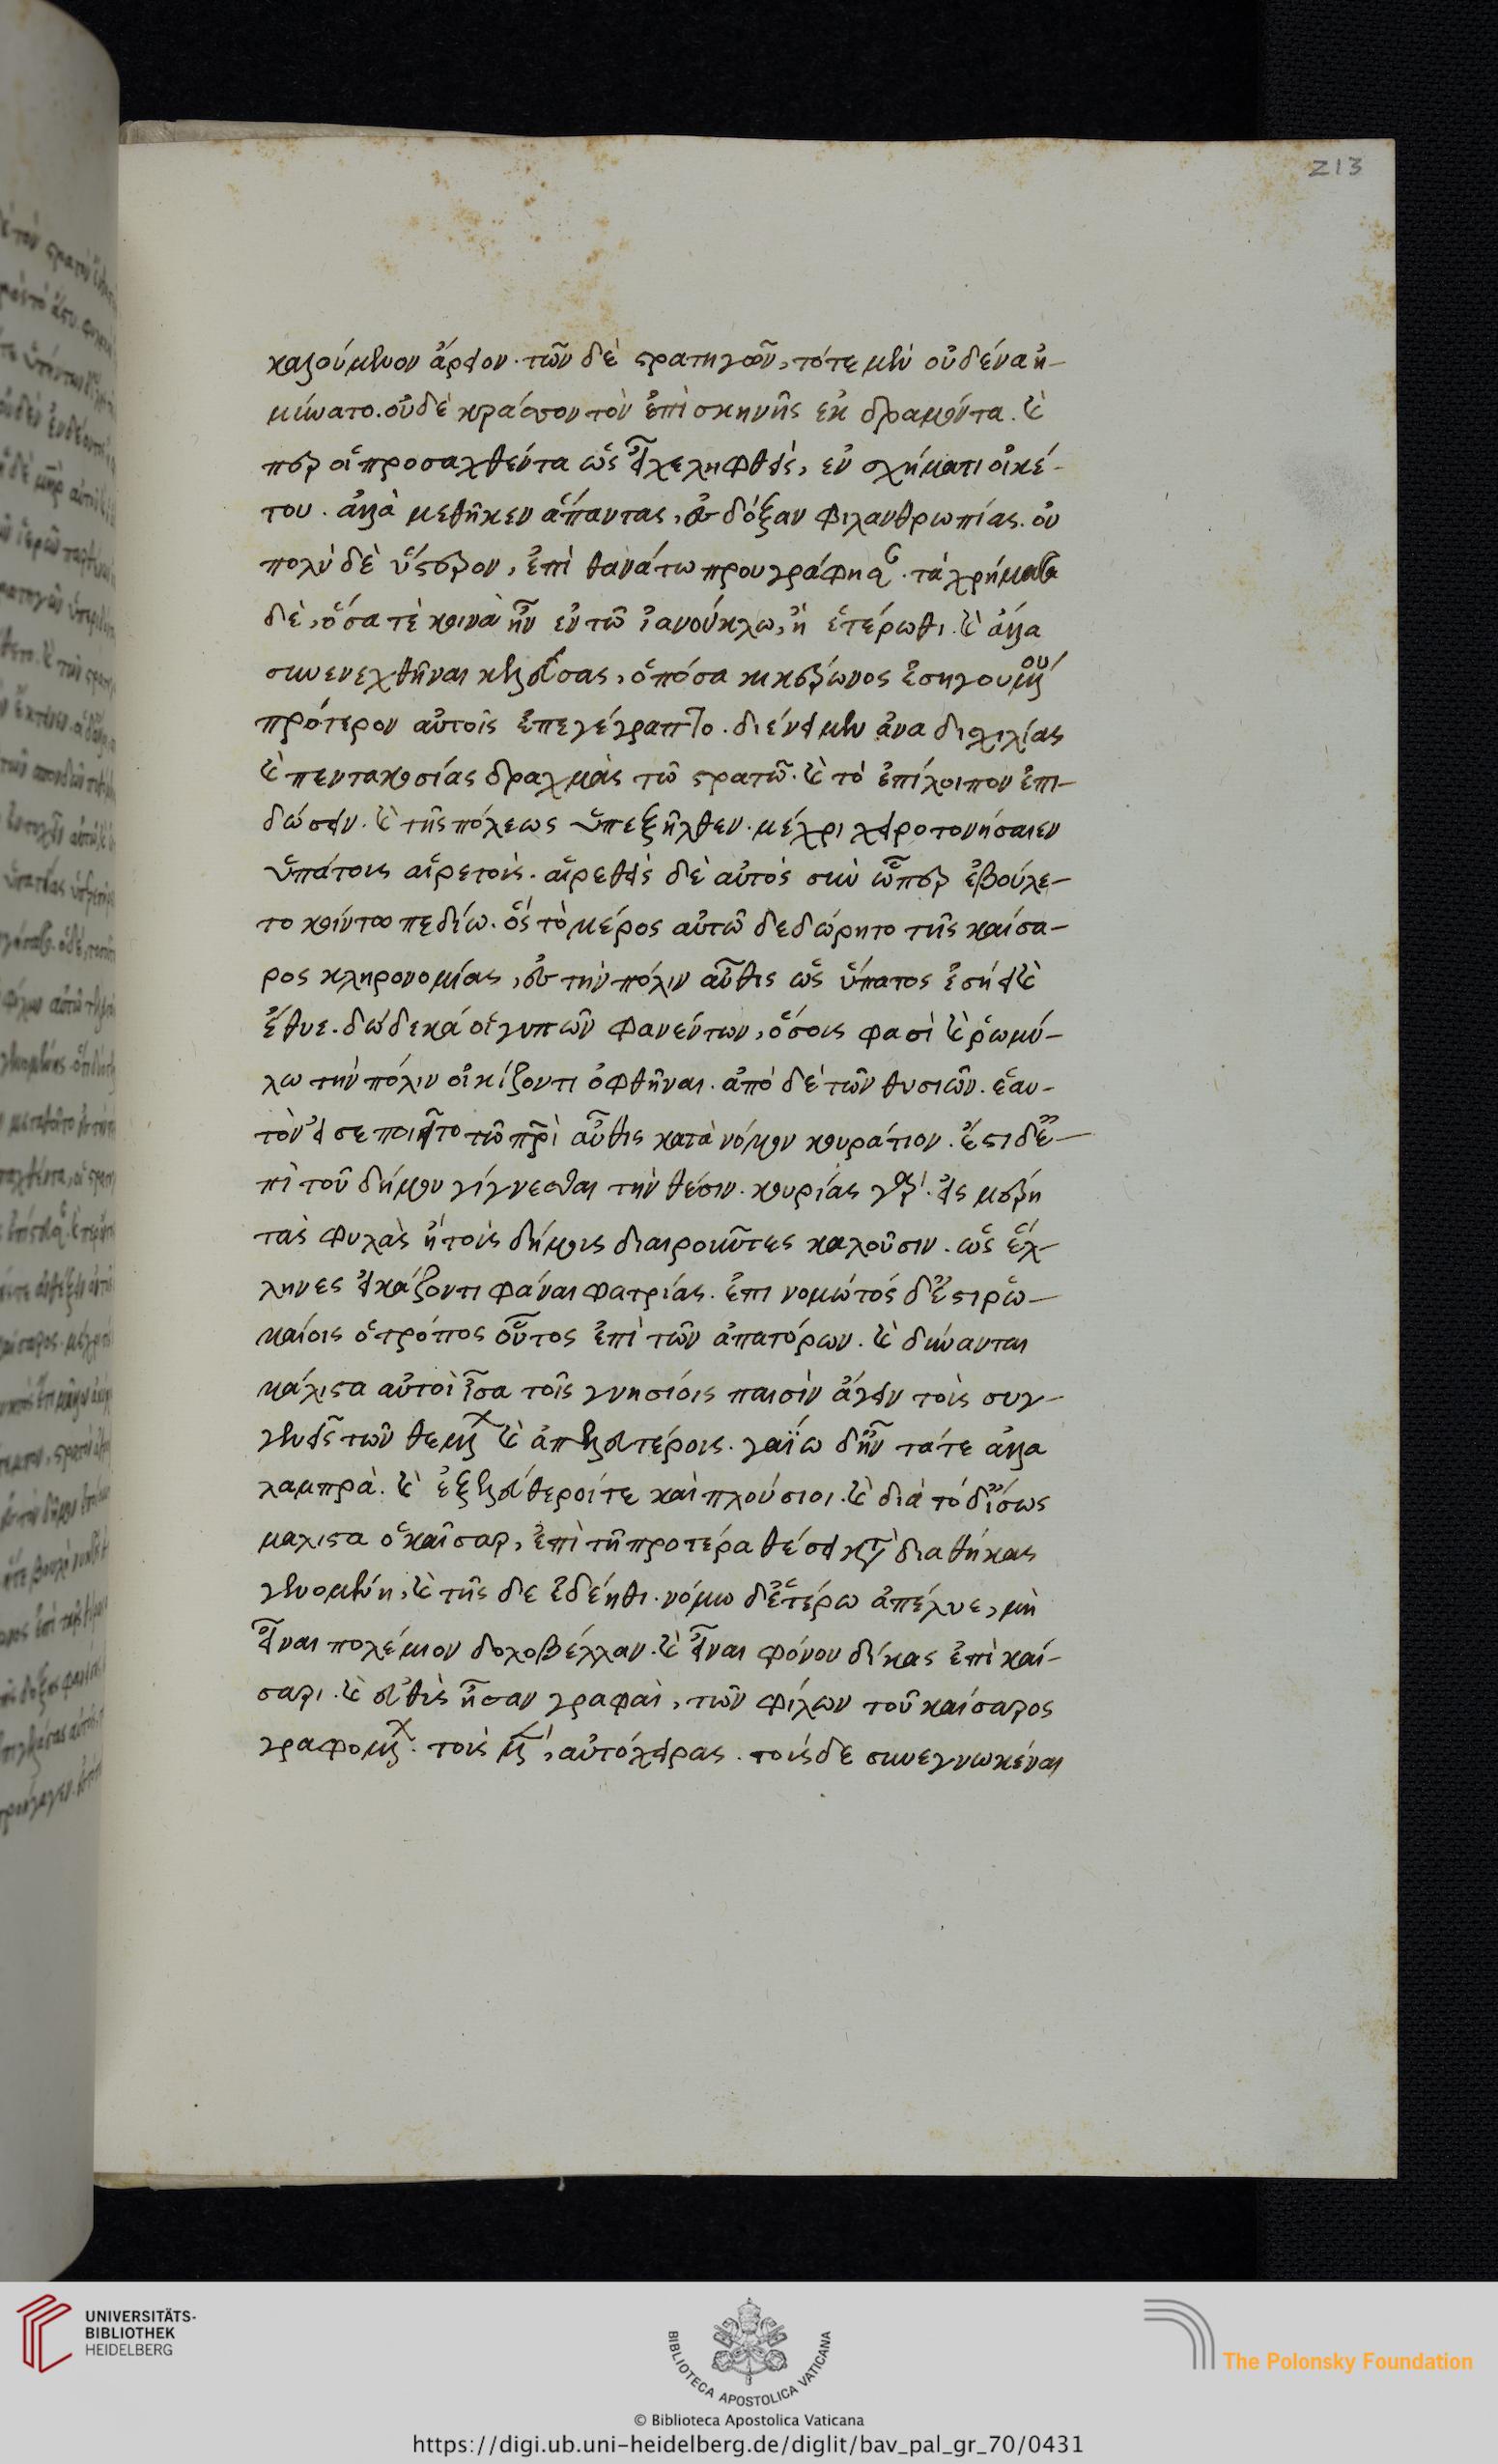 213
καλούμενον ἄρειον. τῶν δὲ στρατηγῶν, τότε μὲν οὐδένα ἠ-
μύνατο. οὐδὲ κράσσον τὸν ἐπὶ σκηνῆς ἐκδραμόντα. καὶ
περ οἷ προσαχθέντα ὡς εἶχε ληφθεὶς, ἐν σχήματι οἰκέ-
του. ἀλλὰ μεθῆκεν ἅπαντας, ἐς δόξαν φιλανθρωπίας. οὐ
πολὺ δὲ ὕστερον, ἐπὶ θανάτω προυγράφησαν. τὰ χρήματα
δὲ, ὅσα τὲ κοινὰ ἦν ἐν τῶ ἰανούκλω, ἢ ἑτέρωθι. καὶ ἄλλα
συνενεχθῆναι κελεύσας, ὁπόσα κικέρωνος ἐσηγουμένου
πρότερον αὐτοῖς ἐπεγέγραπτο. διένειμεν ἀνα δισχιλίας
καὶ πεντακοσίας δραχμὰς τῶ στρατῶ. καὶ τὸ ἐπίλοιπον ἐπι-
δώσειν. καὶ τῆς πόλεως ὑπεξῆλθεν. μέχρι χειροτονήσαιεν
ὑπάτους αἱρετοὺς. αἱρεθεὶς δὲ αὐτὸς σὺν ὧπερ ἐβούλε-
το κοίντω πεδίω. ὃς τὸ μέρος αὐτῶ δεδώρητο τῆς καίσα-
ρος κληρονομίας, ἐς τὴν πόλιν αὖθις ὡς ὕπατος ἐσήει καὶ
ἔθυε. δώδεκά οἱ γυπῶν φανέντων, ὅσους φασὶ καὶ ῥωμύ-
λω τὴν πόλιν οἰκίζοντι ὀφθῆναι. ἀπὸ δὲ τῶν θυσιῶν. ἑαυ-
τὸν εἰσεποιεῖτο τῶ πατρὶ αὖθις κατὰ νόμον κουράτιον. ἔστι δ' ἐ-
πὶ τοῦ δήμου γίγνεσθαι τὴν θέσιν. κουρίας γὰρ εἰς μέρη
τὰς φυλὰς ἢ τοὺς δήμους διαιροῦντες καλοῦσιν. ὡς ἕλ-
ληνες εἰκάζοντι φάναι φατρίας. ἐπινομώτατός δ' ἐστι ῥω-
μαίοις ὁ τρόπος οὗτος ἐπὶ τῶν ἀπατόρων. καὶ δύνανται
μάλιστα αὐτοὶ ἶσα τοῖς γνησίοις παισὶν ἄγειν τοὺς συγ-
γενεῖς τῶν θεμένων καὶ ἀπελευτέρους. γαΐω δ' ἦν τάτε ἄλλα
λαμπρὰ. καὶ ἐξελεύθεροί τε καὶ πλούσιοι. καὶ διὰ τόδ' ἴσως
μάλιστα ὁ καῖσαρ, ἐπὶ τῆ προτέρα θέσει κατὰ διαθήκας
γενομένη, καὶ τῆς δε ἐδεήθη. νόμω δ' ἑτέρω ἀπέλυε, μὴ
εἶναι πολέμιον δολοβέλλαν. καὶ εἶναι φόνου δίκας ἐπὶ καί-
σαρι. καὶ εὐθὺς ἦσαν γραφαὶ, τῶν φίλων τοῦ καίσαρος
γραφομένων. τοὺς μὲν, αὐτόχειρας. τοὺς δε συνεγνωκέναι
UNIVERSITÄTS-
BIBLIOTHEK
HEIDELBERG
BIBLIOTECA APOSTOLICA VATICANA
The Polonsky Foundation
© Biblioteca Apostolica Vaticana
https://digi.ub.uni-heidelberg.de/diglit/bav_pal_gr_70/0431